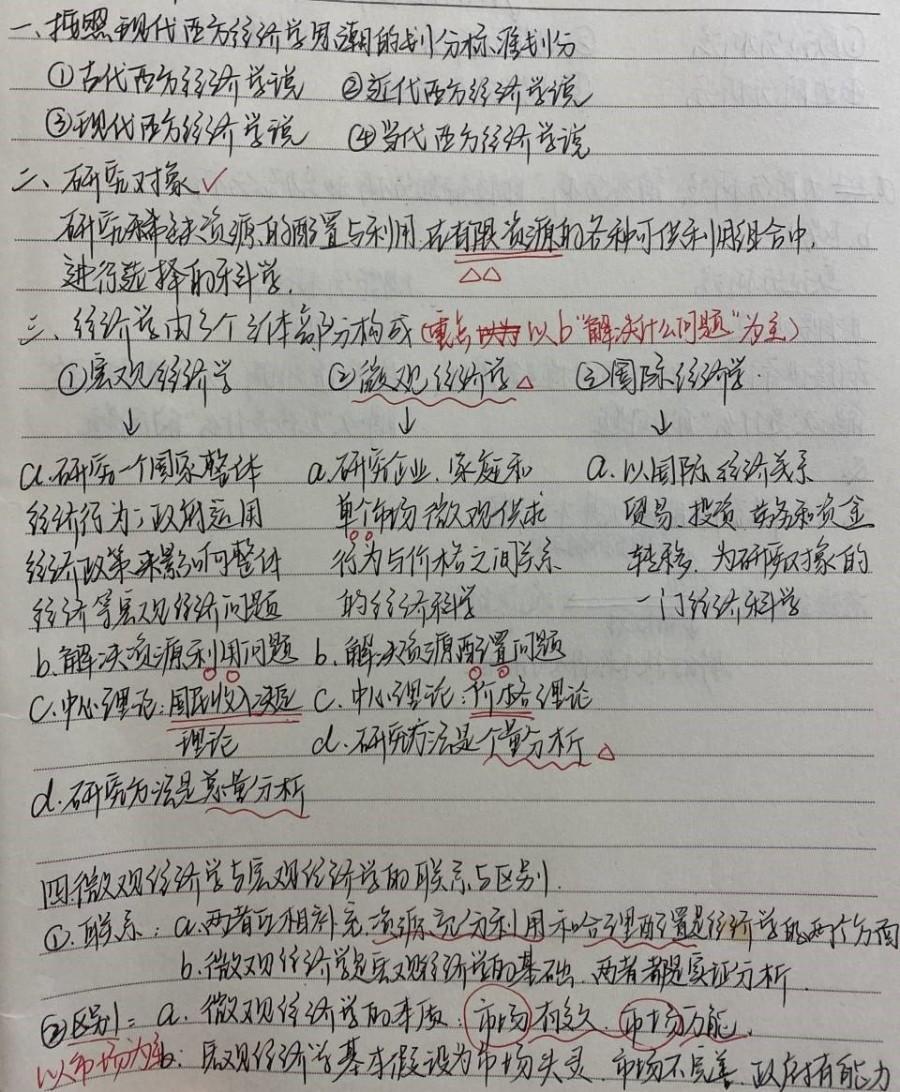 一、按照现代西方经济学思潮的划分标准划分
①古代西方经济学说 ②近代西方经济学说
③现代西方经济学说 ④当代西方经济学说
二、研究对象✓
研究稀缺资源的配置与利用,在有限资源的各种可供利用组合中,
进行选择的科学.
三、经济学由3个主体部分构成(重点 以b"解决什么问题"为主)
①宏观经济学 ②微观经济学△ ③国际经济学.
↓ ↓ ↓
a.研究一个国家整体 a.研究企业、家庭和 a.以国际经济关系
经济行为;政府运用 单个市场微观供求 贸易、投资、劳务和资金
经济政策来影响整体 行为与价格之间关系 转移,为研究对象的
经济等宏观经济问题 的经济科学 一门经济科学
b.解决资源利用问题 b.解决资源配置问题
c.中心理论:国民收入决定 c.中心理论:价格理论
理论 d.研究方法是个量分析△
d.研究方法是总量分析
四.微观经济学与宏观经济学的联系与区别.
①.联系:a.两者互相补充,资源充分利用和合理配置是经济学的两个方面
b.微观经济学是宏观经济学的基础、两者都是实证分析.
②区别:a.微观经济学的本质:市场有效、市场万能.
以市场为主b:宏观经济学基本假设为市场失灵、市场不完善、政府有能力